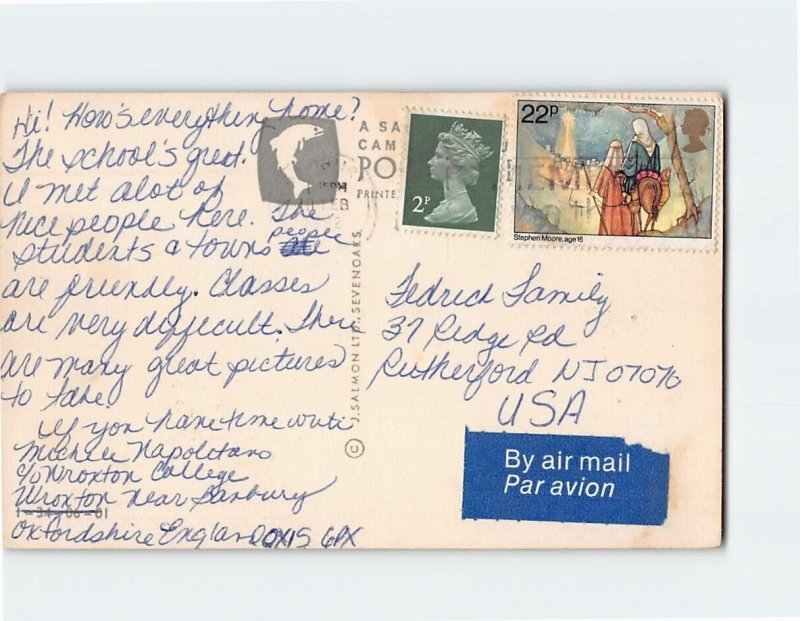 Hi! How's everything home?
The school's great.
I met alot of
nice people here. The
students & towns people
are friendly. Classes
are very difficult. There
are many great pictures
to take!
If you have time write
Michele Napolitano
c/o Wroxton College
Wroxton near Banbury
1-34-06-01
Oxfordshire England OX15 6PX
© J. SALMON LTD., SEVENOAKS.
A SA
CAM
PO
PRINTE
PM
FEB
2P
22P
Stephen Moore, age 16
Fedrich Family
37 Ridge Rd
Rutherford NJ 07070
USA
By air mail
Par avion